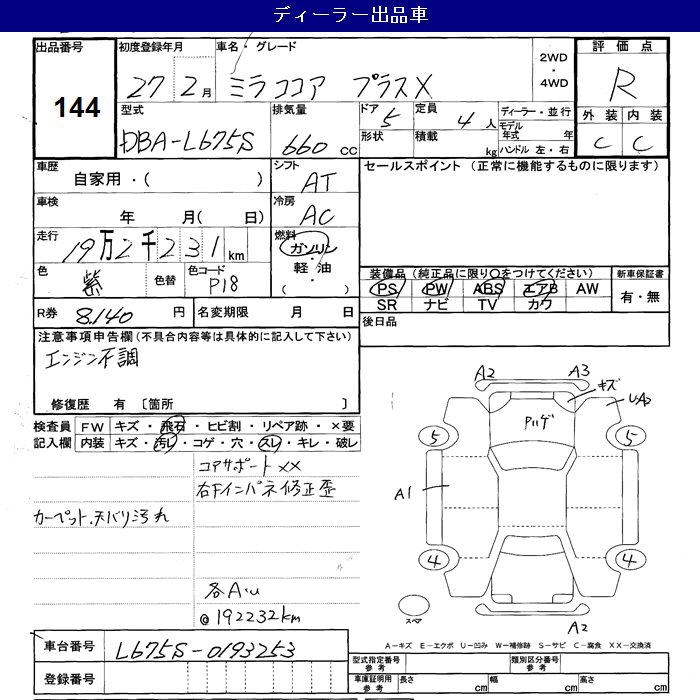 ディーラー出品車
出品番号 初度登録年月 車名・グレード 2WD・4WD 評価点
144 27 2月 ミラココア プラスX R
型式 排気量 ドア 5 定員 4人 ディーラー・並行 外装 内装
DBA-L675S 660cc 形状 積載 kg モデル年式 年 C C
ハンドル 左・右
車歴 自家用・( ) シフト AT セールスポイント (正常に機能するものに限ります)
車検 年 月( 日) 冷房 AC
走行 19万2千231km 燃料 ガソリン・軽油・( )
色 紫 色替 色コード P18 装備品 (純正品に限り○をつけてください) 新車保証書
PS PW ABS エアB AW 有・無
SR ナビ TV カワ
R券 8.140円 名変期限 月 日 後日品
注意事項申告欄 (不具合内容等は具体的に記入して下さい)
エンジン不調
修復歴 有 〔箇所 〕
検査員 FW キズ・飛石・ヒビ割・リペア跡・×要
記入欄 内装 キズ・汚レ・コゲ・穴・スレ・キレ・破レ
コアサポート××
右Fインパネ修正歪
カーペット.天バリ汚れ
各A.U
@192232km
A2 A3
キズ
UA2
ハゲ
5 5
A1
4 4
スペア
A2
車台番号 L675S-0193253
A-キズ E-エクボ U-凹み W-補修跡 S-サビ C-腐食 XX-交換済
登録番号
型式指定番号 参考 類別区分番号 参考
車庫証明用 参考 長さ cm 幅 cm 高さ cm